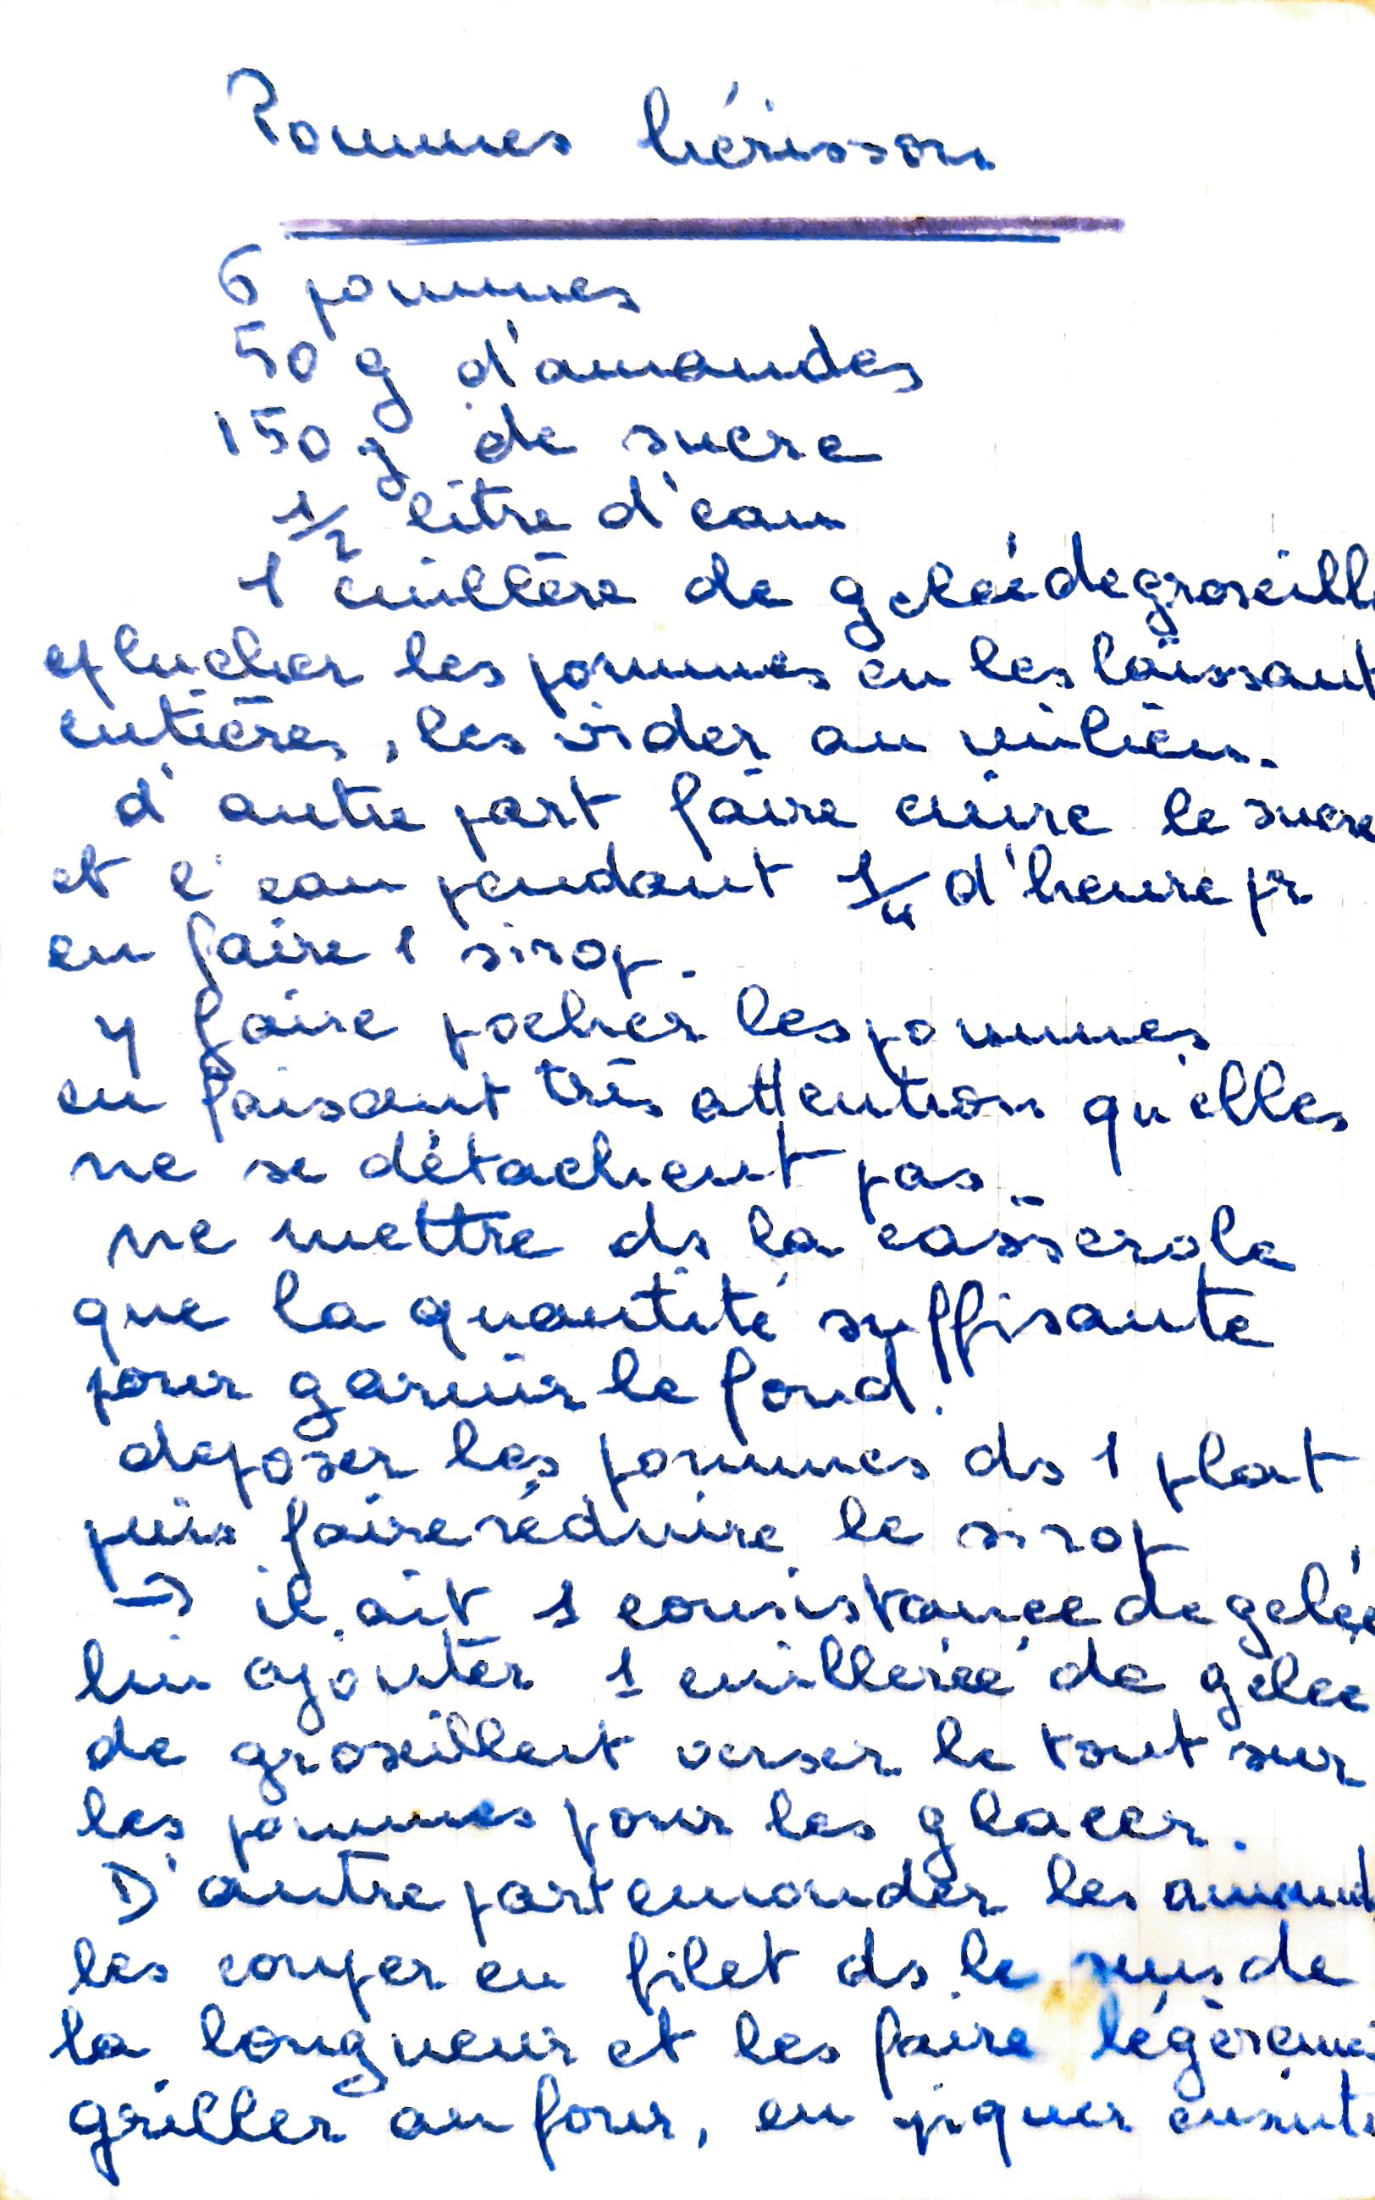 Pommes hérisson
6 pommes
50 g d'amandes
150 g de sucre
1/2 litre d'eau
1 cuillère de gelée de groseille
eplucher les pommes en les laissant
entières, les vider au milieu.
d'autre part faire cuire le sucre
et l'eau pendant 1/4 d'heure pr
en faire 1 sirop.
y faire pocher les pommes
en faisant très attention qu'elles
ne se détachent pas.
ne mettre ds la casserole
que la quantité suffisante
pour garnir le fond.
deposer les pommes ds 1 plat
puis faire réduire le sirop
→ il ait 1 consistance de gelée
lui ajouter 1 cuillerée de gelée
de groseille et verser le tout sur
les pommes pour les glacer.
D'autre part emonder les amand
les couper en filet ds le sens de
la longueur et les faire légèreme
griller au four, en piquer ensuite